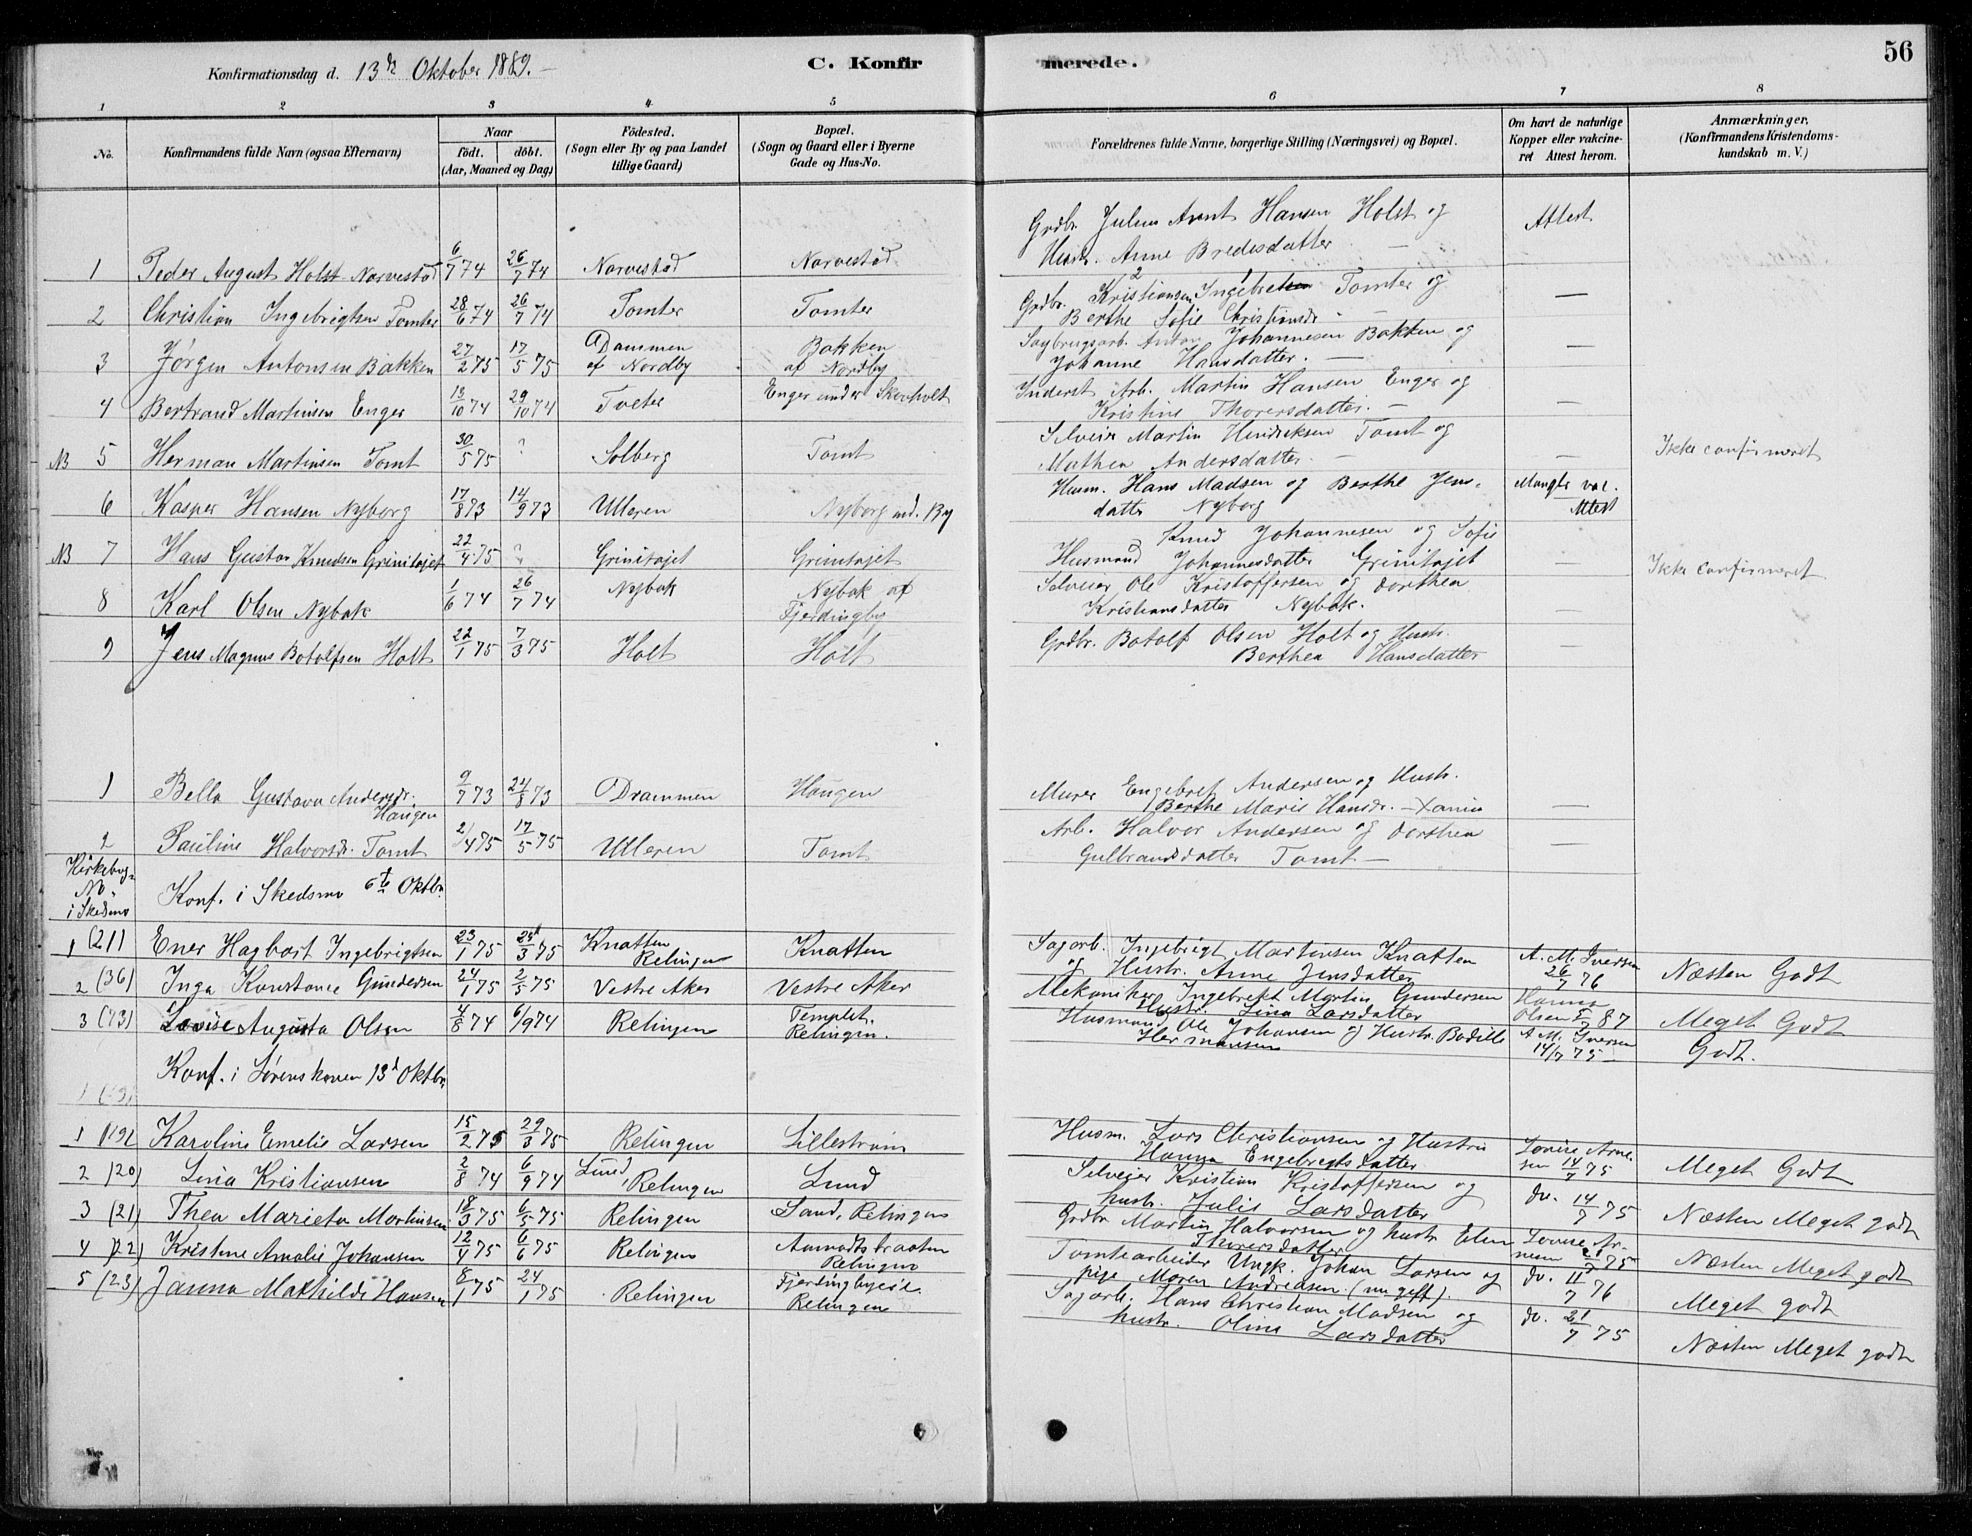 56
Konfirmationsdag d. 13de Oktober 1889.
C. Konfirmerede.
1 2 3 4 5 6 7 8
No. Konfirmandens fulde Navn (ogsaa Efternavn) Naar født. døbt. (Aar, Maaned og Dag) Fødested. (Sogn eller By og paa Landet tillige Gaard) Bopæl. (Sogn og Gaard eller i Byerne Gade og Hus-No. Forældrenes fulde Navne, borgerlige Stilling (Næringsvei) og Bopæl. Om havt de naturlige Kopper eller vakcineret Attest herom. Anmærkninger. (Konfirmandens Kristendomskundskab m. V.)
1 Peder August Holst Norvestad 6/7 74 26/7 74 Norvestad Norvestad Grdbr. Julius Arnt Hansen Holst og Hustr. Anne Bredesdatter — Attest
2 Christian Ingebrigtsen Tomter 28/6 74 26/7 74 Tomter Tomter Grdbr. Kristiansen Ingebret Tomter og Berthe Sofie Christiansdr. — —
3 Jørgen Antonsen Bakken 27/2 75 17/5 75 Dammen af Nordby Bakken af Nordby Sagbrugsarb. Anton Johannesen Bakken og Johanne Hansdatter. — —
4 Bertrand Martinsen Enger 13/10 74 29/10 74 Tveter Enger under Skovholt Inderst Arb. Martin Hansen Enger og Kristine Thorersdatter. — —
NB 5 Herman Martinsen Tomt 30/5 75 ? Solberg Tomt Selveier Martin Hendriksen Tomt og Mathea Andersdatter. — — Ikke confirmeret
6 Kasper Hansen Nyborg 17/8 73 14/9 73 Ulleren Nyborg und. By Husm. Hans Madsen og Berthe Jensdatter Nyborg Mangler vac. Attest
NB 7 Hans Gustav Knudsen Grinitajet 22/4 75 ? Grinitajet Grinitajet Husmand Knud Johannesen og Sofie Johannesdatter Grinitajet — Ikke confirmeret
8 Karl Olsen Nybak 1/6 74 26/7 74 Nybak Nybak af Fjerdingby Selveier Ole Kristoffersen og Dorthea Kristiansdatter Nybak. —
9 Jens Magnus Botolfsen Holt 22/1 75 7/3 75 Holt Holt Grdbr. Botolf Olsen Holt og Hustr. Berthea Hansdatter —
1 Bella Gustava Andersdr. Haugen 9/7 73 24/8 73 Drammen Haugen Murer Engebret Andersen og Hustr. Berthe Marie Hansdr. —
2 Pauline Halvorsdr. Tomt 2/4 75 17/5 75 Ulleren Tomt Arb. Halvor Andersen og Dorthea Gulbrandsdatter Tomt — —
Kirkebog No. i Skedsmo Konf. i Skedsmo 6te Oktbr.
1 (21) Ener Hagbart Ingebrigtsen 23/1 75 25/3 75 Knatten Relingen Knatten Sagarb. Ingebrigt Martinsen Knatten og Hustr. Anne Jensdatter A. M. Iversen 26/7 76 Næsten Godt
2 (36) Inga Konstance Gundersen 24/1 75 2/5 75 Vestre Aker Vestre Aker Mekaniker Ingebrekt Martin Gundersen Hustr. Lina Larsdatter Hanna Olsen 5/7 87 Meget Godt
3 (73) Lovise Augusta Olsen 4/8 74 6/9 74 Relingen Templet, Relingen. Husmand Ole Johansen og Hustr. Bodille Hermansen A M. Iversen 14/7 75 Godt.
Konf. i Lørenskoven 13d Oktbr.
1 (19) Karoline Emelie Larsen 15/2 75 29/3 75 Relingen Lillestrøm Husm. Lars Christiansen og Hustru Hanna Engebregtsdatter Lovise Arnesen 14/7 75 Meget Godt
2 (20) Lina Kristiansen 2/8 74 6/9 74 Lund, Relingen Lund Selveier Kristian Kristoffersen og hustr. Julie Larsdatter do. 14/7 75 Næsten Meget godt
3 (21) Thea Marieta Martinsen 18/3 75 6/5 75 Relingen Sand, Relingen Grdbr. Martin Halvorsen og hustr Elen Thorersdatter Lovise Arnesen 21/7 75 Næsten Meget godt
4 (22) Kristine Amalie Johansen 12/4 75 6/6 75 Relingen Aamodtsbraaten Relingen Tomtearbeider Ungk. Johan Larsen og pige Maren Andreasen (nu gift). do. 11/7 76 Meget godt
5 (23) Janna Mathilde Hansen 8/1 75 24/1 75 Relingen Fjerdingbyeie. Relingen Sagarb. Hans Christian Madsen og hustr. Oline Larsdatter do. 21/7 75 Næsten Meget godt